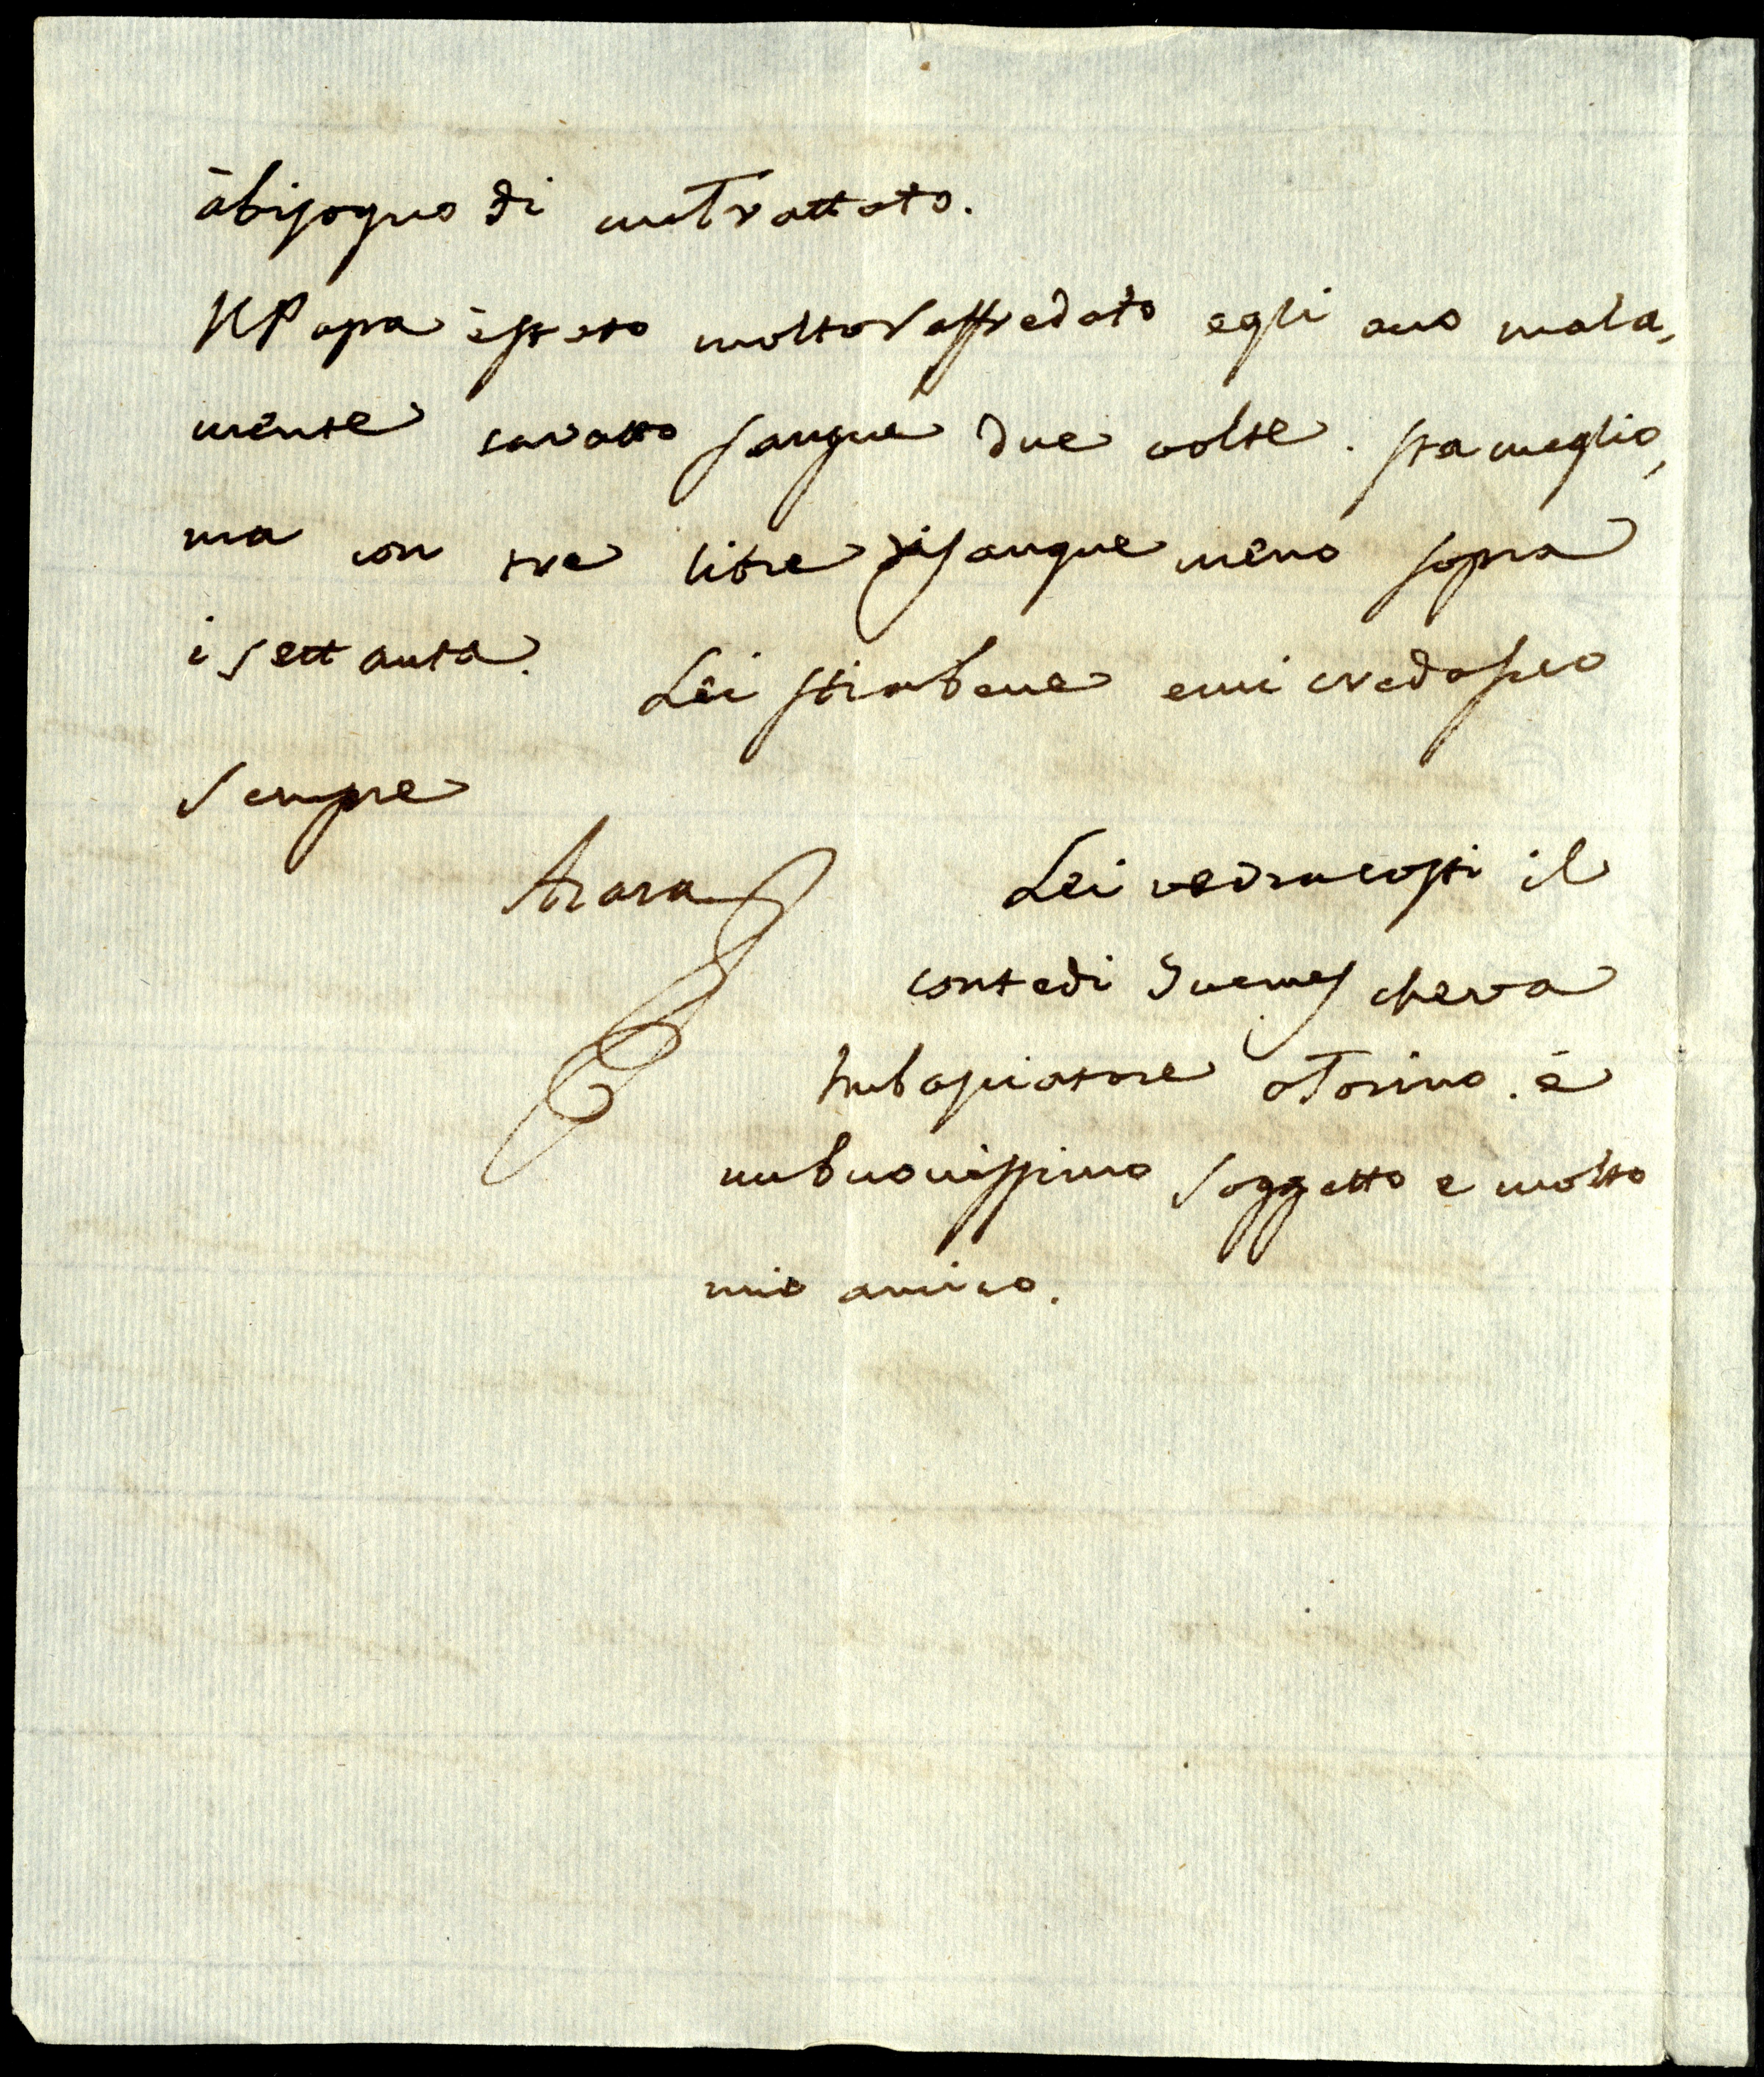 à bisogno di un Trattato.
Il Papa è stato molto raffredato egli ano mala,
mente cavatto sangue due volte. sta meglio,
ma con tre libre di sangue meno sopra
i settanta. Lei stia bene e mi creda suo
sempre
Azara
Lei vedra costi il
conte di che va
Imbasciatore a Torino. è
un buonissimo soggetto e molto
mio amico.